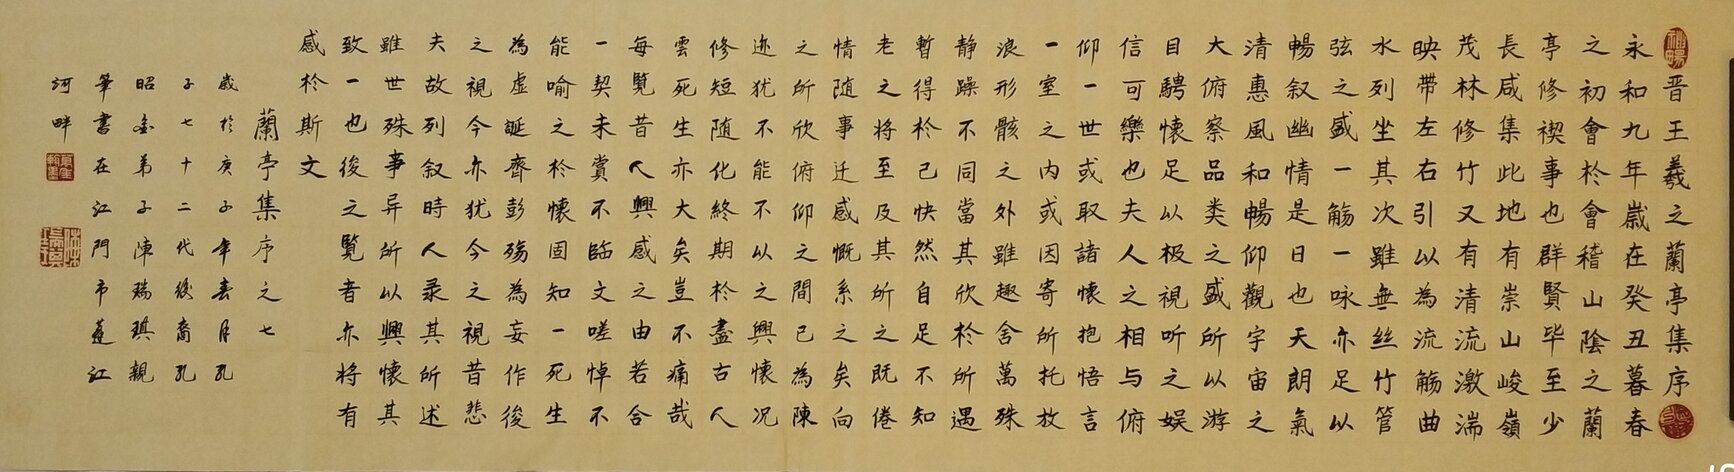 晋王羲之蘭亭集序
永和九年歲在癸丑暮春
之初會於會稽山陰之蘭
亭修禊事也群賢毕至少
長咸集此地有崇山峻嶺
茂林修竹又有清流激湍
映帶左右引以為流觞曲
水列坐其次雖無丝竹管
弦之盛一觞一咏亦足以
暢叙幽情是日也天朗氣
清惠風和暢仰觀宇宙之
大俯察品类之盛所以游
目騁懷足以极視听之娱
信可樂也夫人之相与俯
仰一世或取諸懷抱悟言
一室之内或因寄所托放
浪形骸之外雖趣舍萬殊
静躁不同當其欣於所遇
暫得於己快然自足不知
老之将至及其所之既倦
情随事迁感慨系之矣向
之所欣俯仰之間已為陳
迹犹不能不以之興懷况
修短随化終期於盡古人
雲死生亦大矣豈不痛哉
每覽昔人興感之由若合
一契未賞不臨文嗟悼不
能喻之於懷固知一死生
為虚誕齊彭殤為妄作後
之視今亦犹今之視昔悲
夫故列叙時人录其所述
雖世殊事异所以興懷其
致一也後之覽者亦将有
感於斯文
蘭亭集序之七
歲於庚子年春月孔
子七十二代後裔孔
昭金弟子陳瑞琪親
筆書在江門市蓬江
河畔